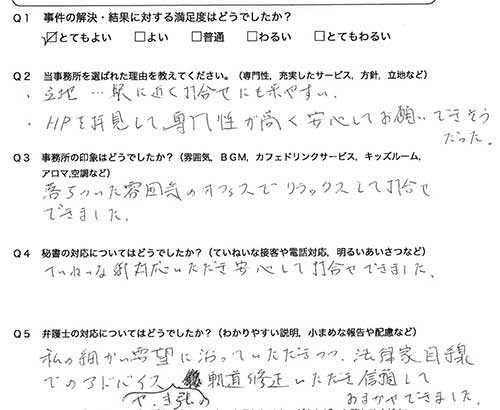 Q1 事件の解決・結果に対する満足度はどうでしたか？
☑とてもよい □よい □普通 □わるい □とてもわるい
Q2 当事務所を選ばれた理由を教えてください。（専門性，充実したサービス，方針，立地など）
・立地 …駅に近く打合せにも来やすい．
・HPを拝見して専門性が高く安心してお願いできそう
だった．
Q3 事務所の印象はどうでしたか？（雰囲気，BGM，カフェドリンクサービス，キッズルーム，
アロマ,空調など）
落ちついた雰囲気のオフィスでリラックスして打合せ
できました．
Q4 秘書の対応についてはどうでしたか？（ていねいな接客や電話対応，明るいあいさつなど）
ていねいな対応いただき安心して打合せできました．
Q5 弁護士の対応についてはどうでしたか？（わかりやすい説明，小まめな報告や配慮など）
私の細かい要望に沿っていただきつつ、法律家目線
でのアドバイス 軌道修正いただき信頼して
や、主張の おまかせできました．